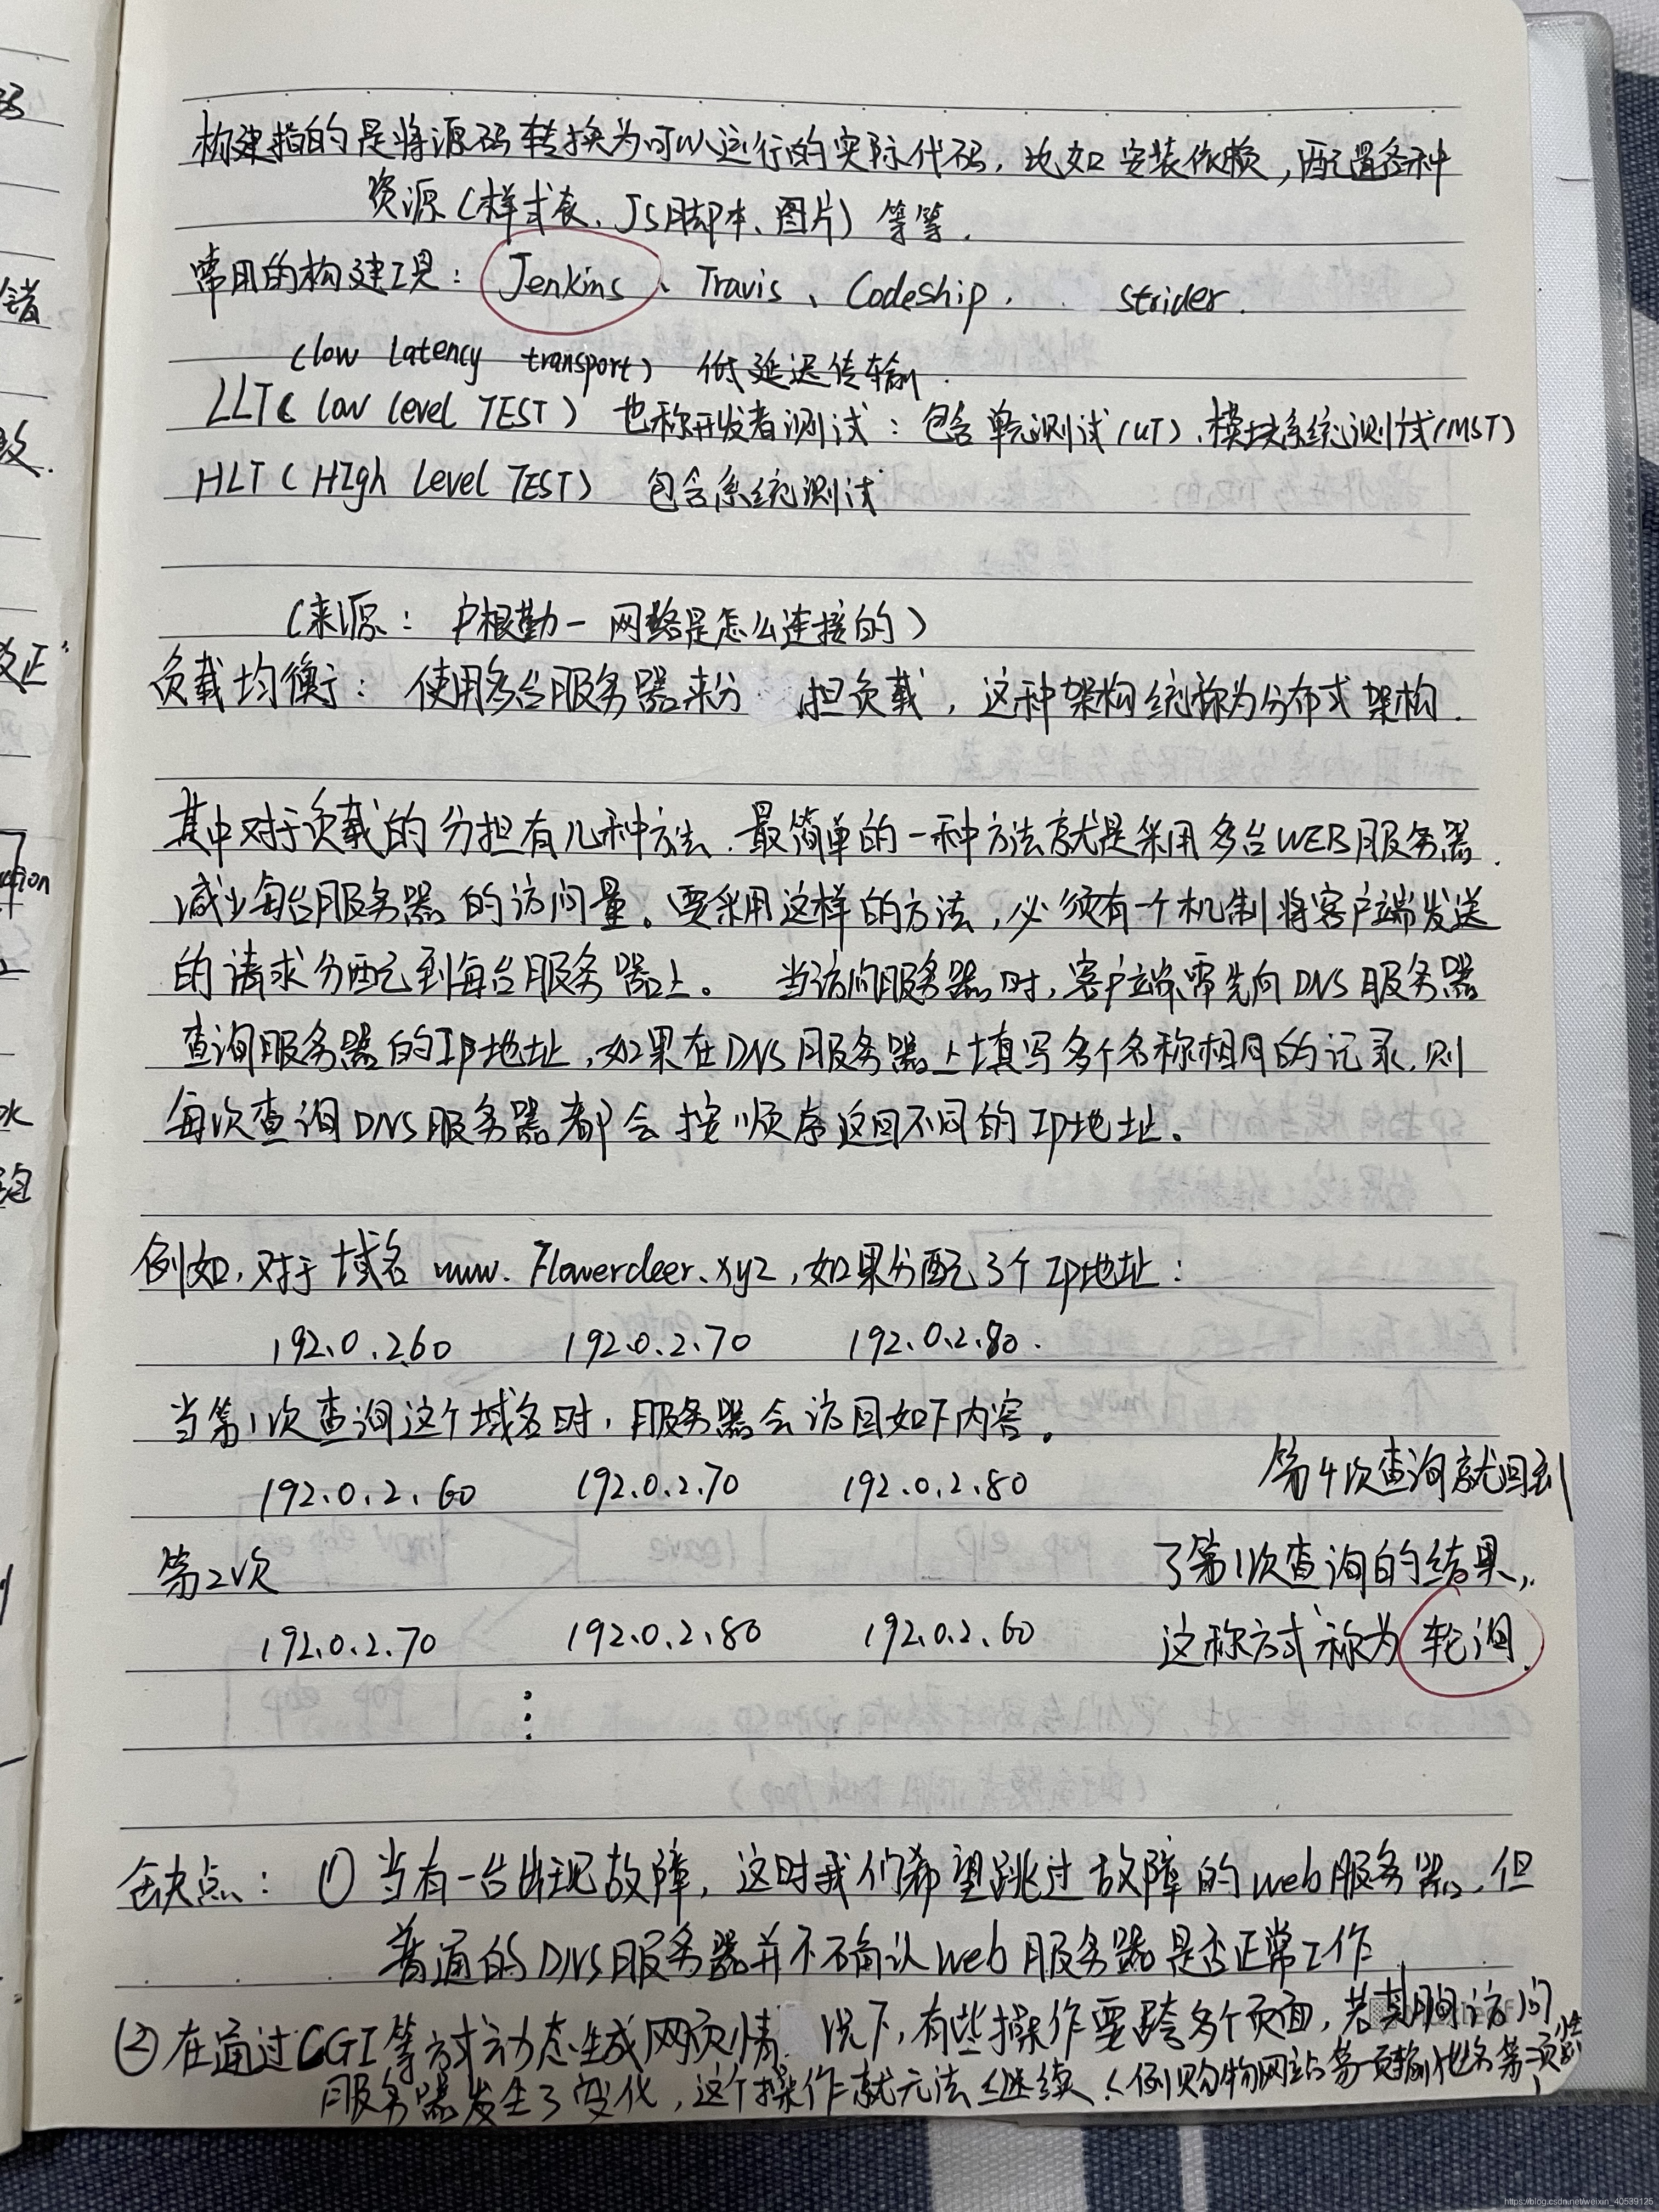 构建指的是将源码转换为可以运行的实际代码，比如安装依赖，配置各种
资源（样式表、JS脚本、图片）等等.
常用的构建工具：Jenkins、Travis、Codeship. strider.
(low latency transport) 低延迟传输.
LLT( low level TEST) 也称开发者测试：包含单元测试(UT)、模块系统测试(MST)
HLT( HIgh Level TEST) 包含系统测试
(来源：户根勤一 网络是怎么连接的)
负载均衡：使用多台服务器来分 担负载，这种架构统称为分布式架构.
其中对于负载的分担有几种方法.最简单的一种方法就是采用多台WEB服务器.
减少每台服务器的访问量。要采用这样的方法，必须有一个机制将客户端发送
的请求分配到每台服务器上。 当访问服务器时，客户端需先向DNS服务器
查询服务器的IP地址，如果在DNS服务器上填写多个名称相同的记录.则
每次查询DNS服务器都会按顺序返回不同的IP地址。
例如，对于域名 www.Flowerdeer.xyz，如果分配3个Ip地址：
192.0.2.60 192.0.2.70 192.0.2.80.
当第1次查询这个域名时，服务器会访回如下内容。
192.0.2.60 192.0.2.70 192.0.2.80
第2次
192.0.2.70 192.0.2.80 192.0.2.60
第4次查询就回到
了第1次查询的结果,.
这称方式称为轮询.
缺点：① 当有一台出现故障，这时我们希望跳过故障的web服务器，但
普通的DNS服务器并不确认web服务器是否正常工作.
② 在通过CGI等方式动态生成网页情 况下，有些操作要跨多个页面，若其期间访问
服务器发生了变化，这个操作就无法继续.(例购物网站第一页输地名第二页
https://blog.csdn.net/weixin_40539125